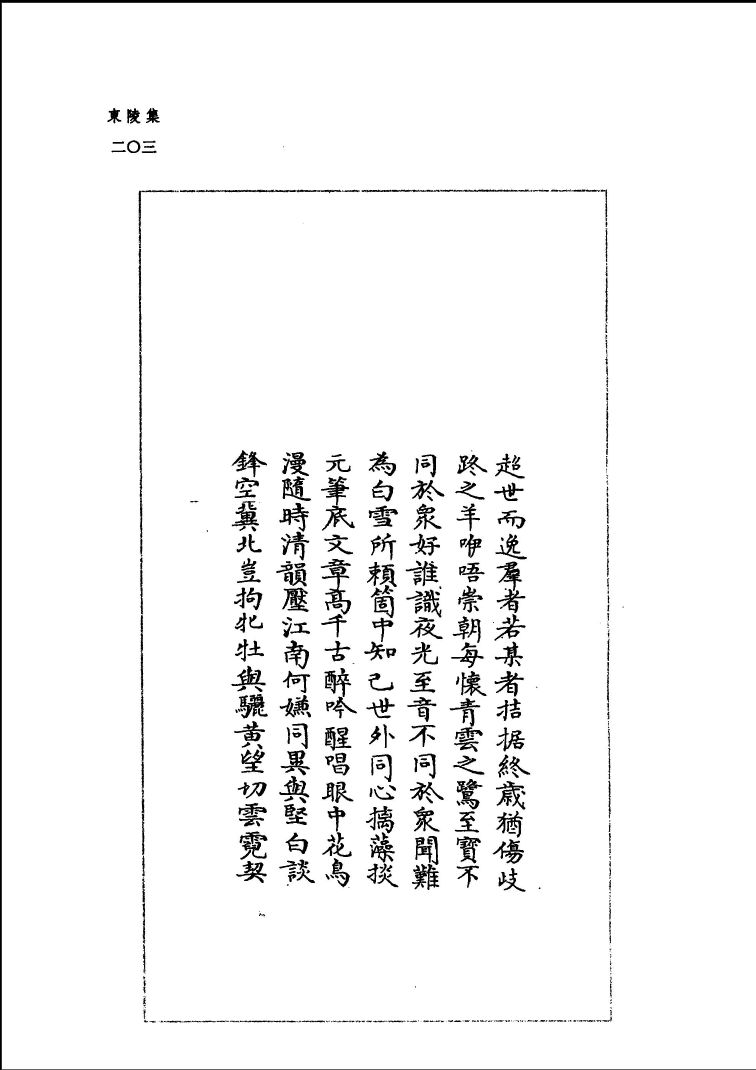 東陵集
二〇三
超世而逸羣者若某者拮据終歲猶傷歧
路之羊咿唔崇朝每懷青雲之鷺至寶不
同於衆好誰識夜光至音不同於衆聞難
為白雪所賴箇中知己世外同心摛藻掞
元筆底文章高千古醉吟醒唱眼中花鳥
漫隨時清韻壓江南何嫌同異與堅白談
鋒空冀北豈拘牝牡與驪黃望切雲霓契